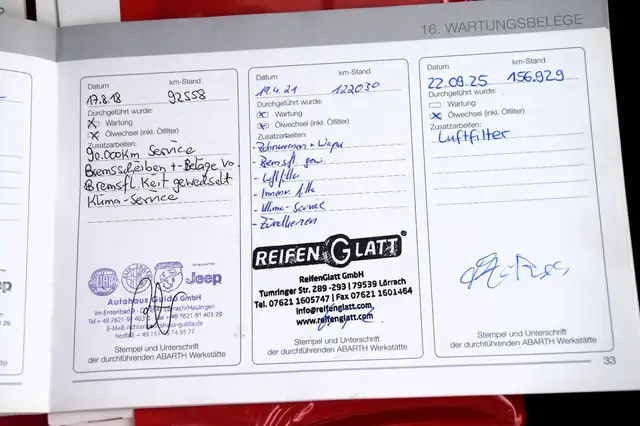 16. WARTUNGSBELEGE
Datum km-Stand
17.8.18 92558
Durchgeführt wurde:
Wartung
Ölwechsel (inkl. Ölfilter)
Zusatzarbeiten:
90.000km Service
Bremsscheiben + -Beläge Vo.
Bremsfl.keit gewechselt
Klima-Service
Jeep
Autohaus Guida GmbH
Lörrach/Hauingen
Stempel und Unterschrift
der durchführenden ABARTH Werkstätte
Datum km-Stand
19.4.21 122030
Durchgeführt wurde:
Wartung
Ölwechsel (inkl. Ölfilter)
Zusatzarbeiten:
- Zahnriemen + Wapu
- Bremsfl.
- Luftfilter
- Klima-Service
- Zündkerzen
REIFENGLATT
ReifenGlatt GmbH
Tumringer Str. 289-293 | 79539 Lörrach
Tel. 07621 1605747 | Fax 07621 1601464
info@reifenglatt.com
www.reifenglatt.com
Stempel und Unterschrift
der durchführenden ABARTH Werkstätte
Datum km-Stand
22.09.25 156.929
Durchgeführt wurde:
Wartung
Ölwechsel (inkl. Ölfilter)
Zusatzarbeiten:
Luftfilter
Stempel und Unterschrift
der durchführenden ABARTH Werkstätte
33